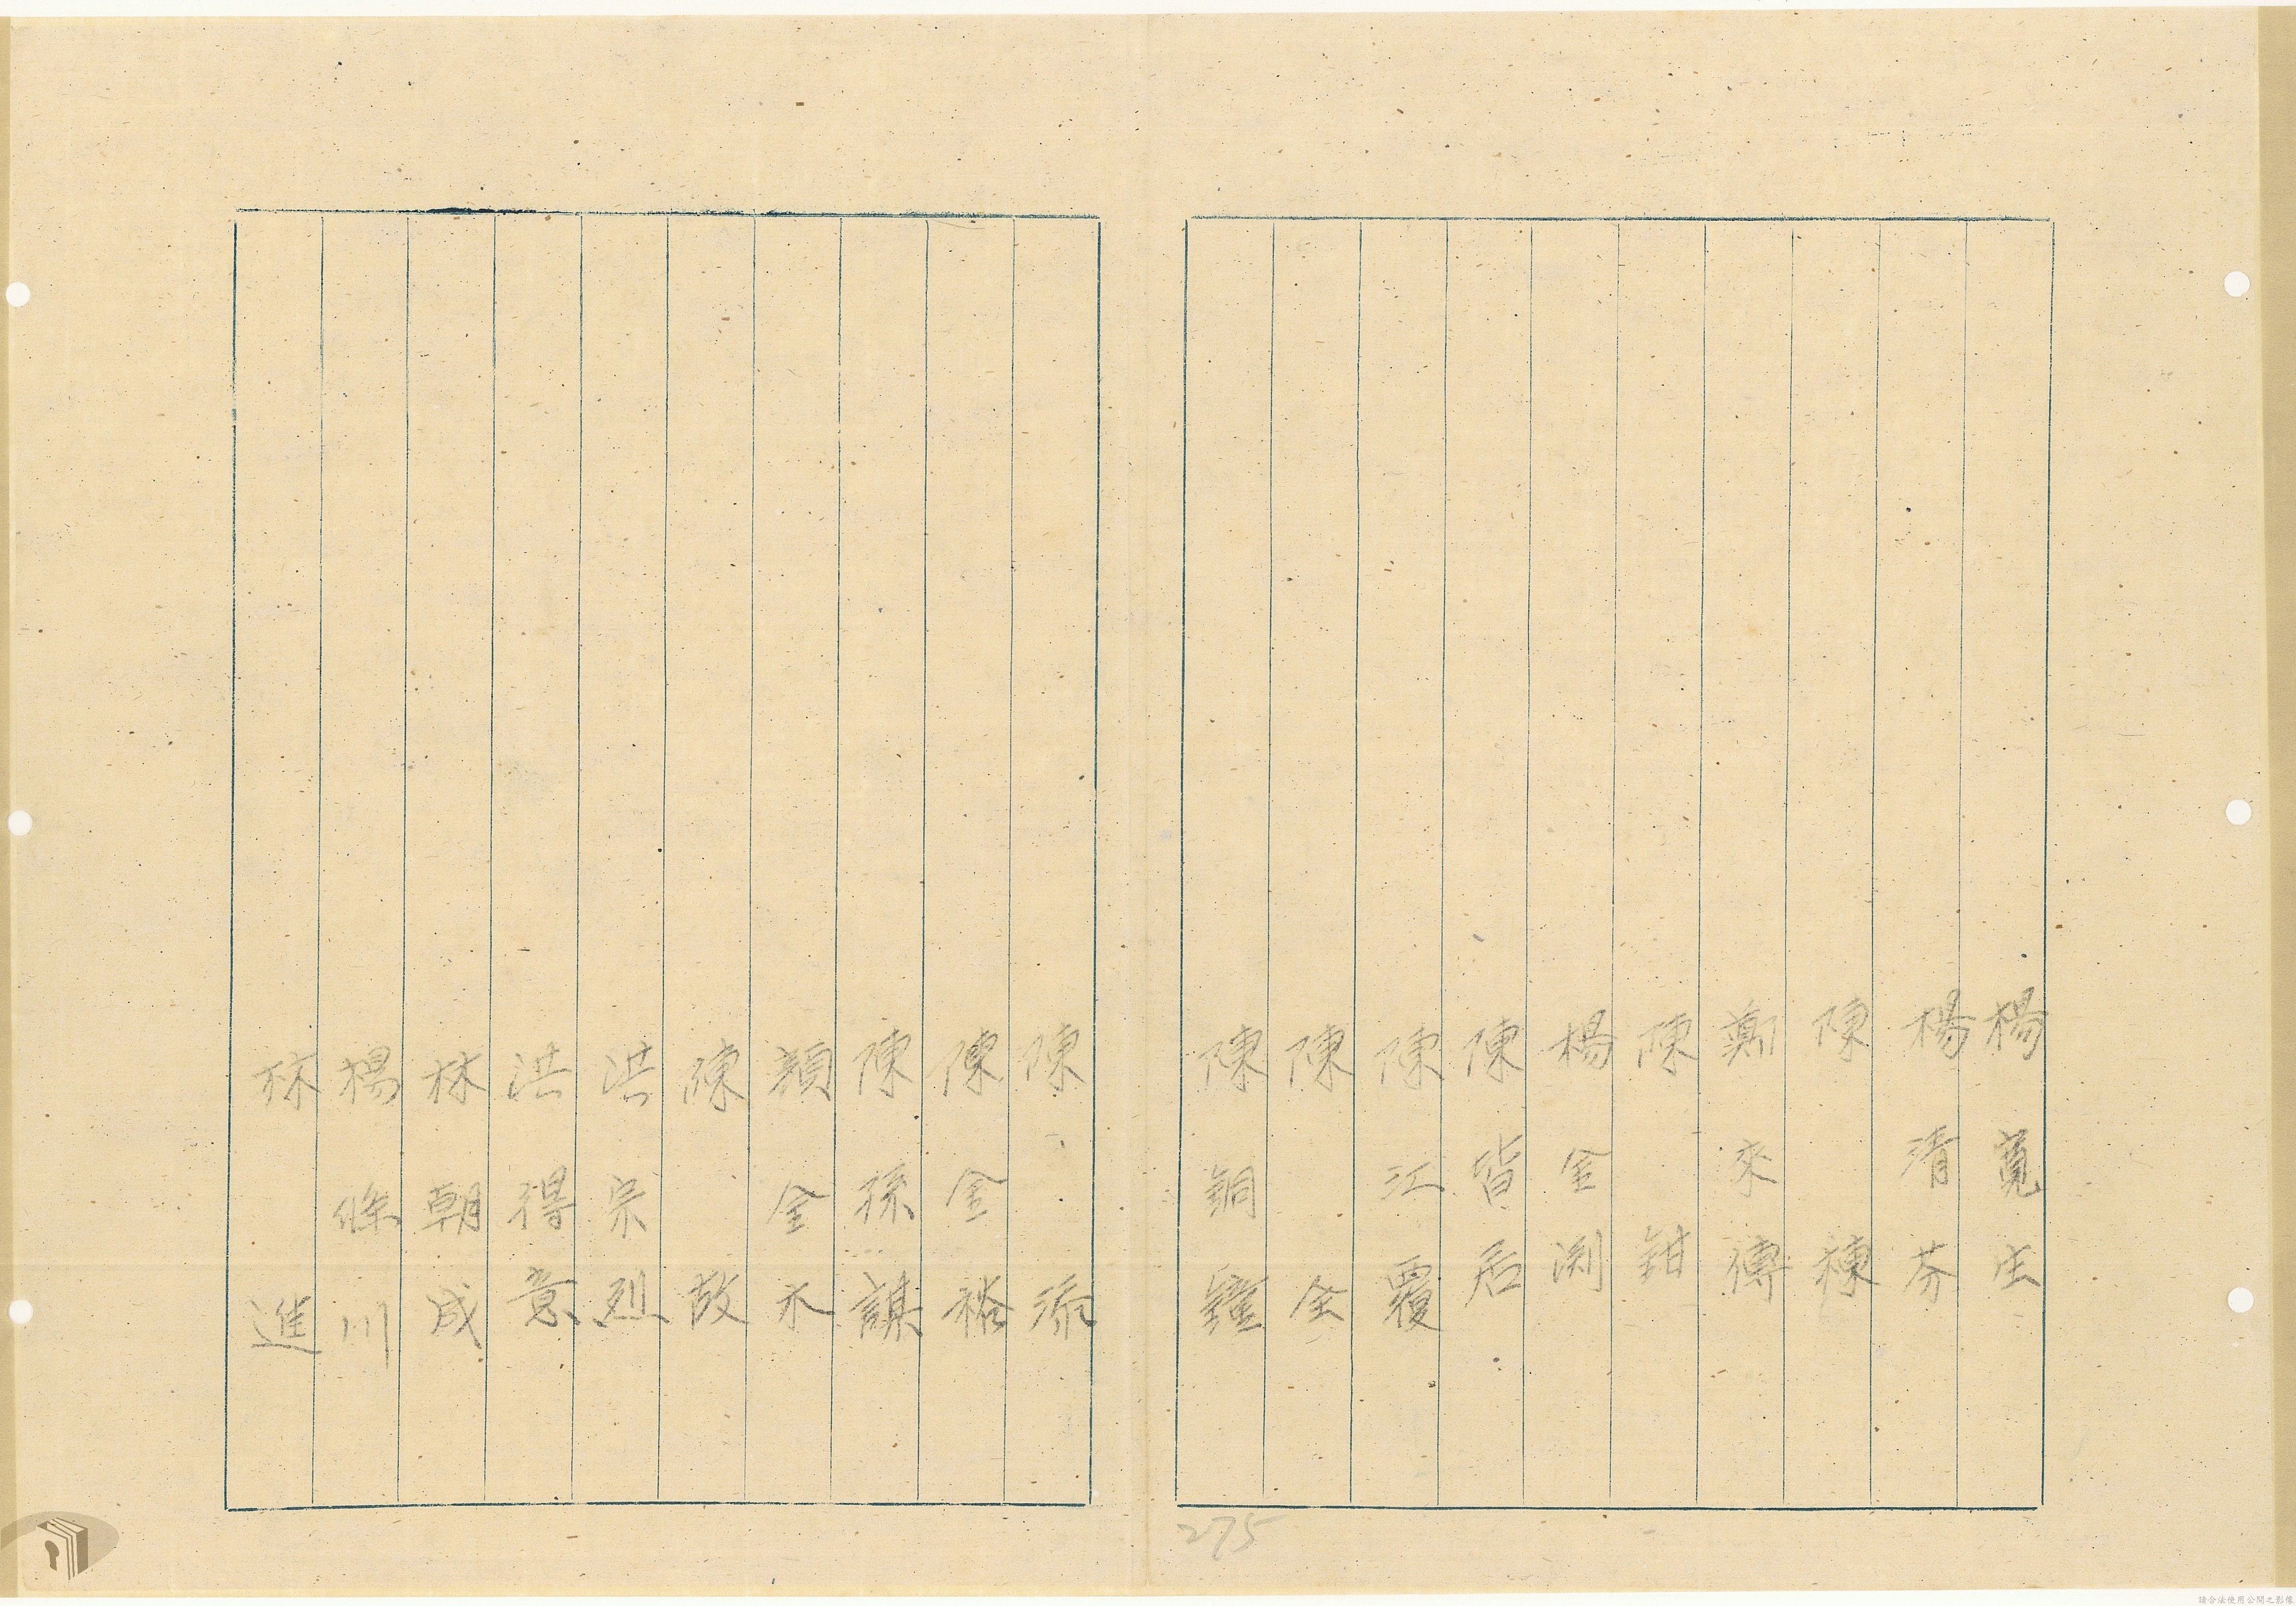 楊寬生
楊清芬
陳棟
鄭來傳
陳鉗
楊金渕
陳皆居
陳江覆
陳全
陳銅鐘
陳添
陳金裕
陳孫謀
顏全木
陳故
洪宗烈
洪得意
林朝成
楊條川
林進
275
請合法使用公開之影像